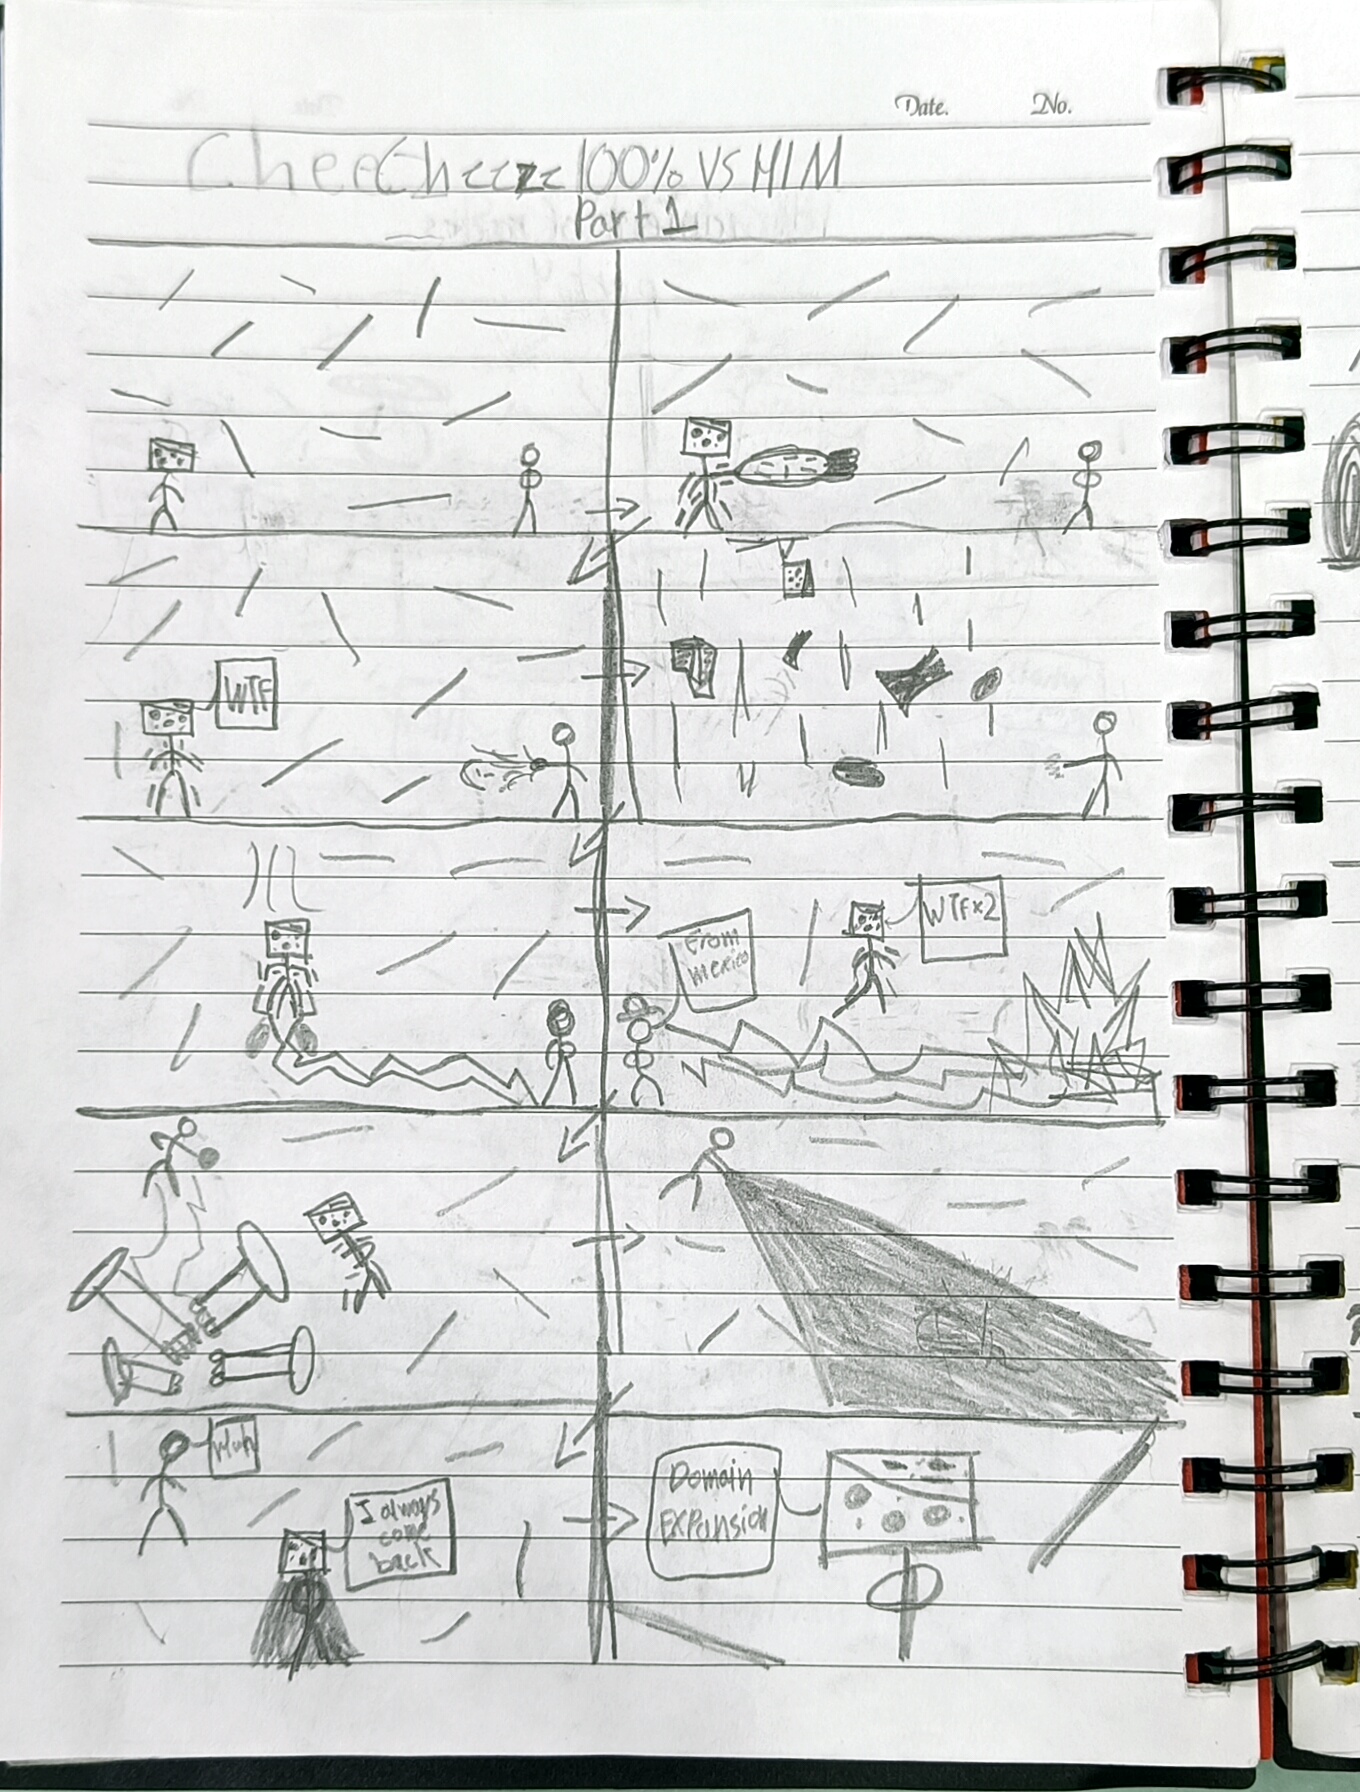 Date. No.
Chee Cheeze 100% VS HIM
Part 1
WTF
From
Mexico
WTF×2
I always
come
back
Domain
EXPansion